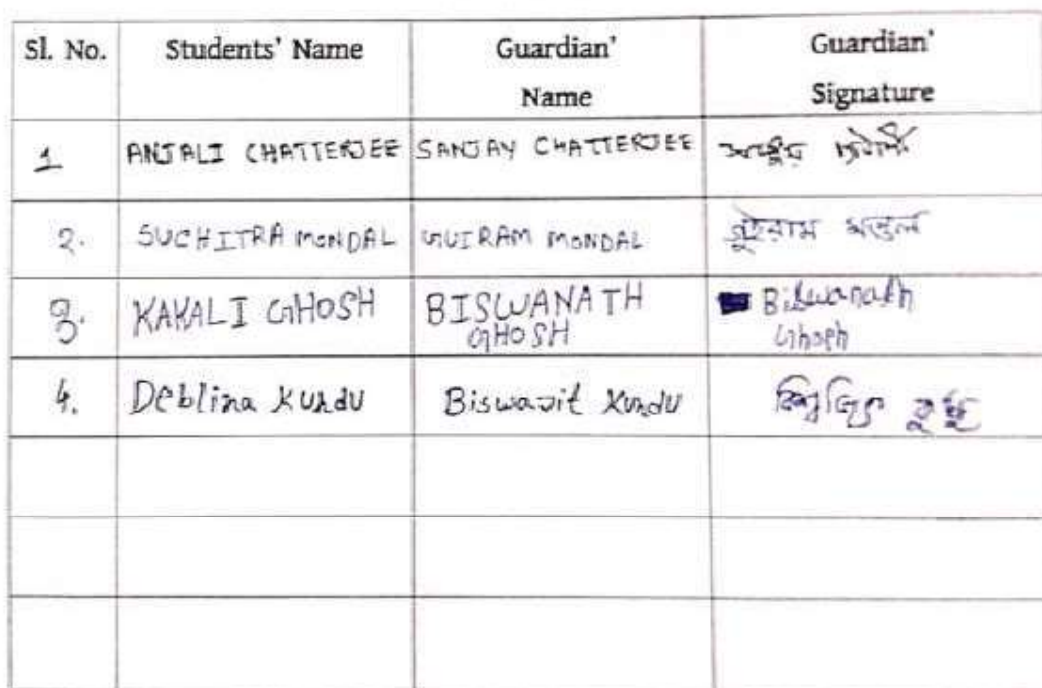 Sl. No. Students' Name Guardian' Name Guardian' Signature
1 ANJALI CHATTERJEE SANJAY CHATTERJEE
2. SUCHITRA MONDAL GUIRAM MONDAL গুইরাম মন্ডল
3. KAKALI GHOSH BISWANATH GHOSH Biswanath Ghosh
4. Deblina Kundu Biswajit Kundu বিশ্বজিৎ কুন্ডু